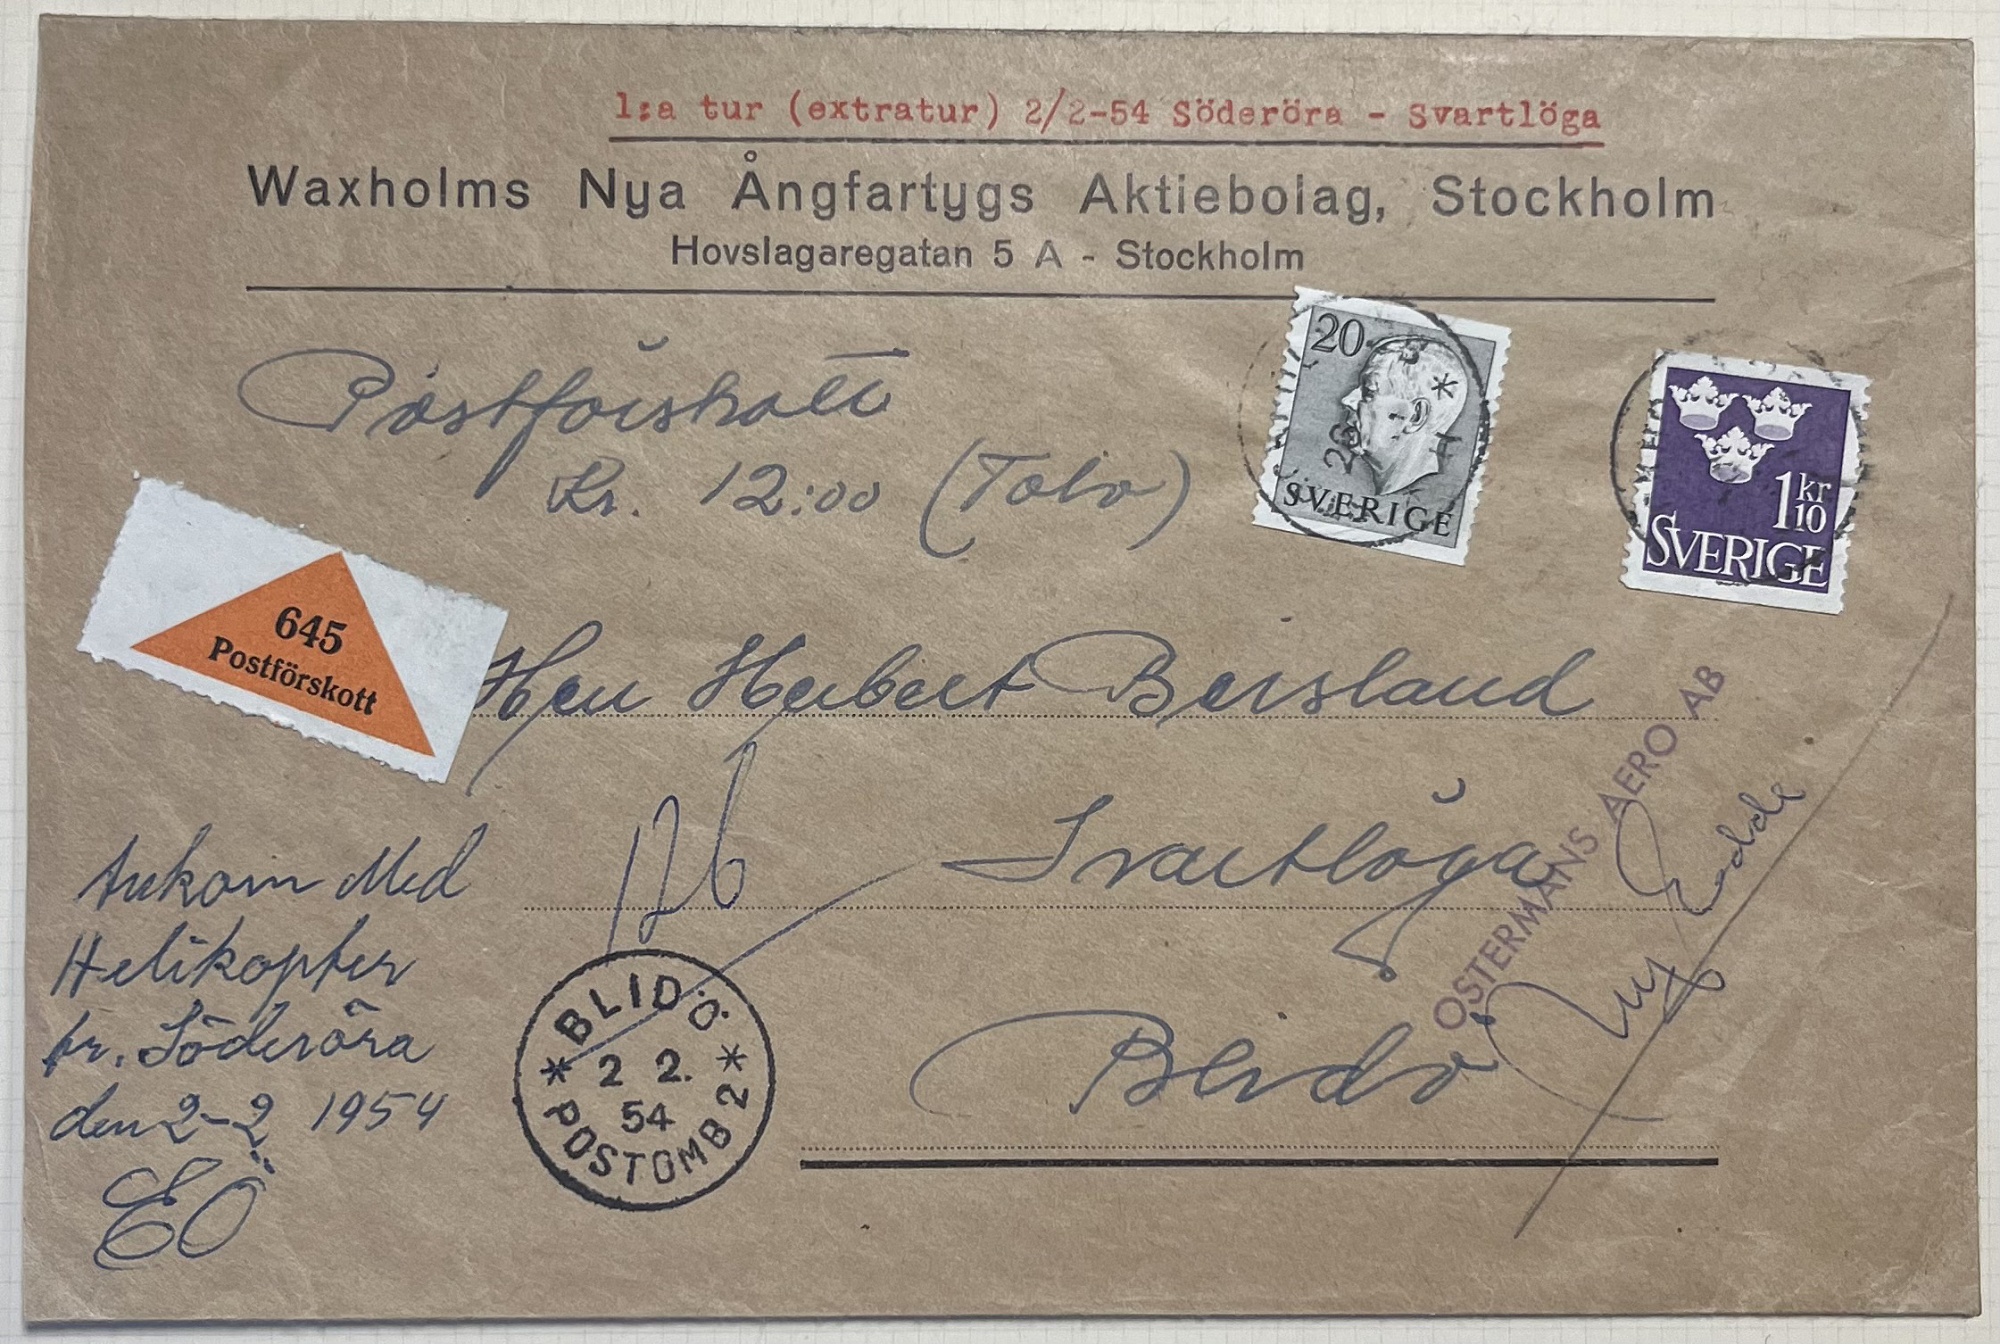 1:a tur (extratur) 2/2-54 Söderöra - Svartlöga
Waxholms Nya Ångfartygs Aktiebolag, Stockholm
Hovslagaregatan 5 A - Stockholm
Postförskott
Kr. 12:00 (Tolv)
20
SVERIGE
1 kr 10
SVERIGE
645
Postförskott
Herr Herbert Borsland
Svartlöga
Blidö
126
OSTERMANS AERO AB
Ankom Med
Helikopter
fr. Söderöra
den 2-2 1954
EÖ
BLIDÖ
* 2 2. *
54
POSTOMB 2